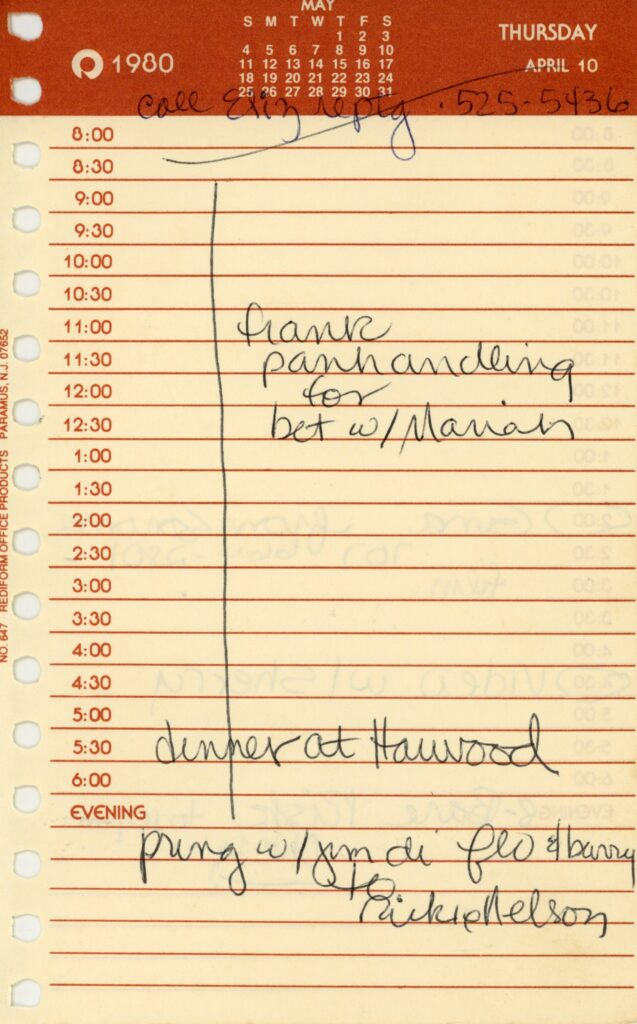 MAY
S M T W T F S
1 2 3
4 5 6 7 8 9 10
11 12 13 14 15 16 17
18 19 20 21 22 23 24
25 26 27 28 29 30 31
1980
THURSDAY
APRIL 10
call Eliz reptg. 525-5436
8:00
8:30
9:00
9:30
10:00
10:30
11:00 frank
11:30 panhandling
12:00 for
12:30 bet w/ Mariah
1:00
1:30
2:00
2:30
3:00
3:30
4:00
4:30
5:00
5:30 dinner at Harwood
6:00
EVENING
w/ jim di flo & barry
to
Rickie Nelson
NO. 647 REDIFORM OFFICE PRODUCTS PARAMUS, N.J. 07652